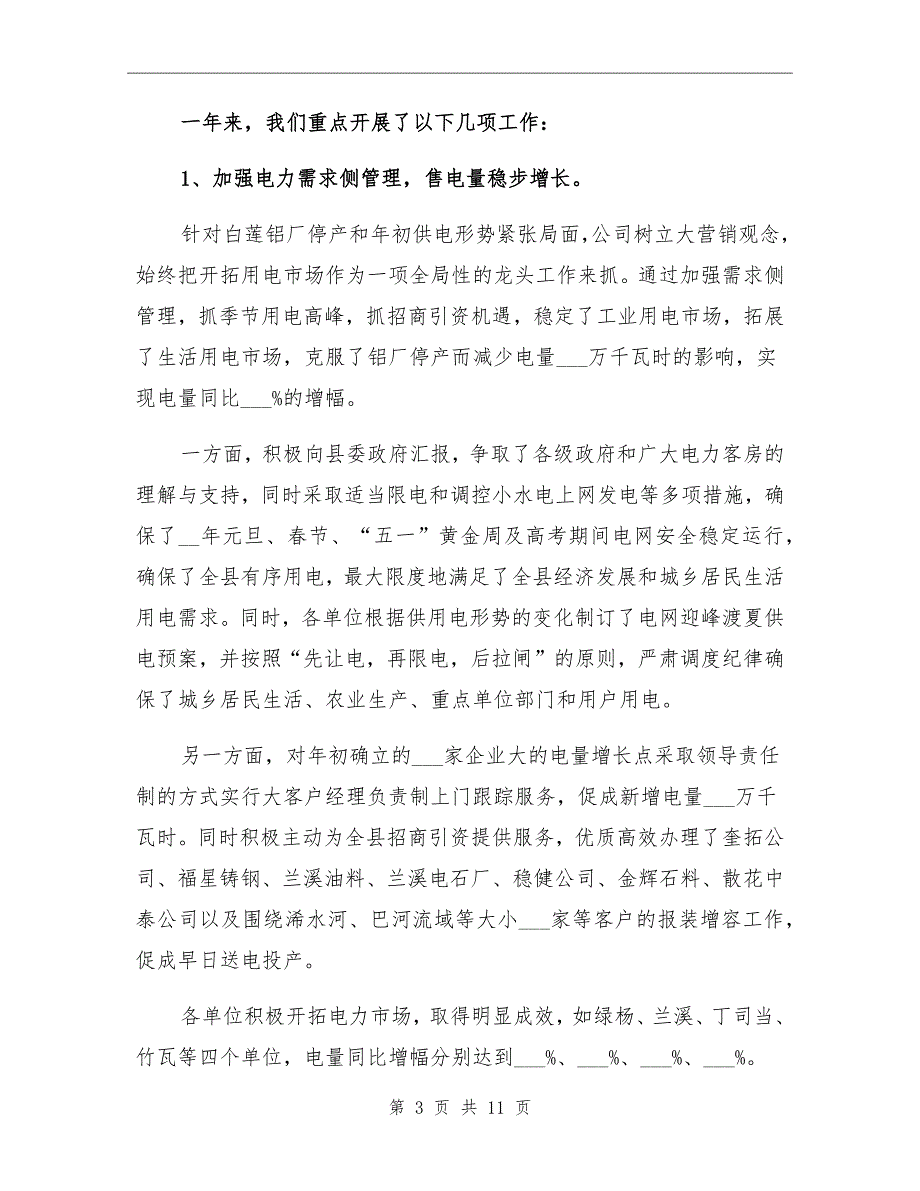 一年来，我们重点开展了以下几项工作：
1、加强电力需求侧管理，售电量稳步增长。
针对白莲铝厂停产和年初供电形势紧张局面，公司树立大营销观念，
始终把开拓用电市场作为一项全局性的龙头工作来抓。通过加强需求侧
管理，抓季节用电高峰，抓招商引资机遇，稳定了工业用电市场，拓展
了生活用电市场，克服了铝厂停产而减少电量___万千瓦时的影响，实
现电量同比___%的增幅。
一方面，积极向县委政府汇报，争取了各级政府和广大电力客房的
理解与支持，同时采取适当限电和调控小水电上网发电等多项措施，确
保了__年元旦、春节、“五一”黄金周及高考期间电网安全稳定运行，
确保了全县有序用电，最大限度地满足了全县经济发展和城乡居民生活
用电需求。同时，各单位根据供用电形势的变化制订了电网迎峰渡夏供
电预案，并按照“先让电，再限电，后拉闸”的原则，严肃调度纪律确
保了城乡居民生活、农业生产、重点单位部门和用户用电。
另一方面，对年初确立的___家企业大的电量增长点采取领导责任
制的方式实行大客户经理负责制上门跟踪服务，促成新增电量___万千
瓦时。同时积极主动为全县招商引资提供服务，优质高效办理了奎拓公
司、福星铸钢、兰溪油料、兰溪电石厂、稳健公司、金辉石料、散花中
泰公司以及围绕浠水河、巴河流域等大小___家等客户的报装增容工作，
促成早日送电投产。
各单位积极开拓电力市场，取得明显成效，如绿杨、兰溪、丁司当、
竹瓦等四个单位，电量同比增幅分别达到___%、___%、___%、___%。
第 3 页 共 11 页